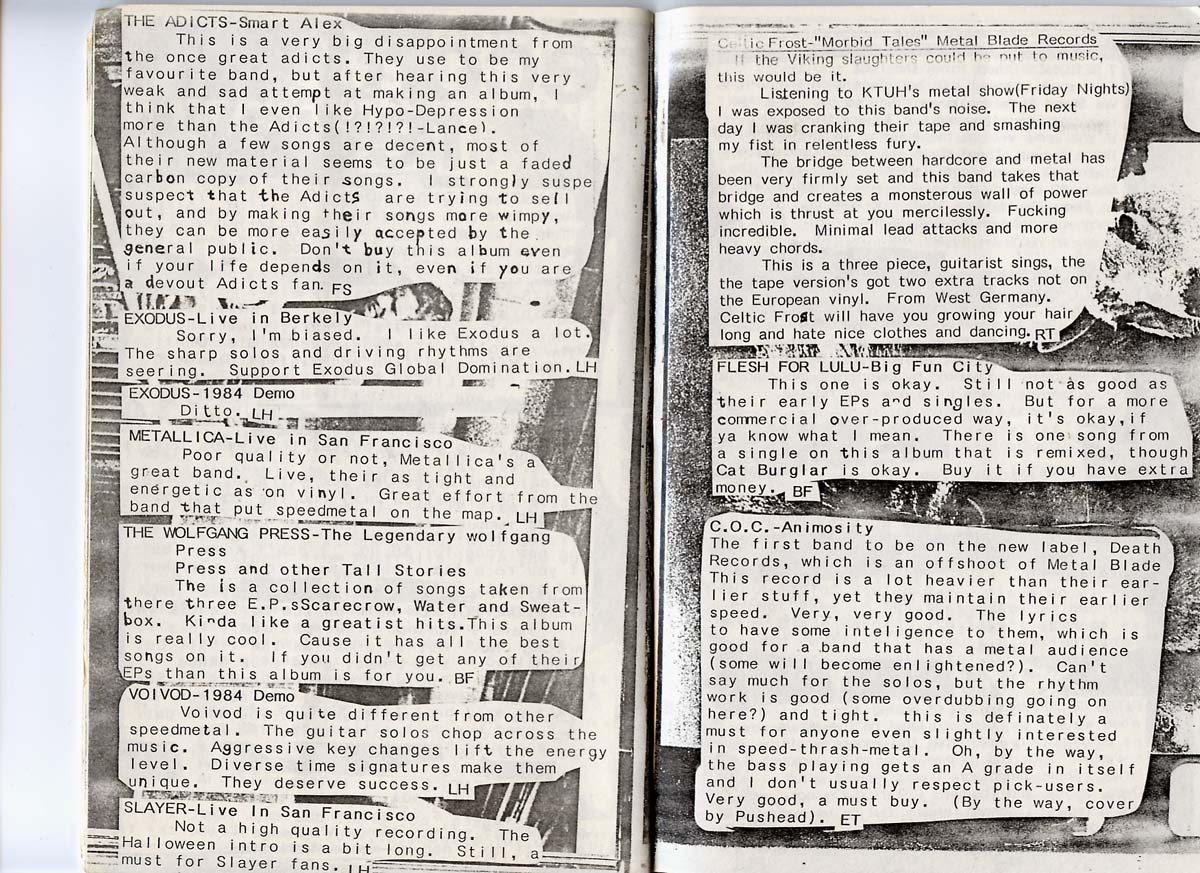 THE ADICTS-Smart Alex
This is a very big disappointment from
the once great adicts. They use to be my
favourite band, but after hearing this very
weak and sad attempt at making an album, I
think that I even like Hypo-Depression
more than the Adicts(!?!?!?!-Lance).
Although a few songs are decent, most of
their new material seems to be just a faded
carbon copy of their songs. I strongly suspe
suspect that the Adicts are trying to sell
out, and by making their songs more wimpy,
they can be more easily accepted by the
general public. Don't buy this album even
if your life depends on it, even if you are
a devout Adicts fan. FS
EXODUS-Live in Berkely
Sorry, I'm biased. I like Exodus a lot.
The sharp solos and driving rhythms are
seering. Support Exodus Global Domination. LH
EXODUS-1984 Demo
Ditto. LH
METALLICA-Live in San Francisco
Poor quality or not, Metallica's a
great band. Live, their as tight and
energetic as on vinyl. Great effort from the
band that put speedmetal on the map. LH
THE WOLFGANG PRESS-The Legendary wolfgang
Press
Press and other Tall Stories
The is a collection of songs taken from
there three E.P.sScarecrow, Water and Sweat-
box. Kinda like a greatist hits.This album
is really cool. Cause it has all the best
songs on it. If you didn't get any of their
EPs than this album is for you. BF
VOIVOD-1984 Demo
Voivod is quite different from other
speedmetal. The guitar solos chop across the
music. Aggressive key changes lift the energy
level. Diverse time signatures make them
unique. They deserve success. LH
SLAYER-Live In San Francisco
Not a high quality recording. The
Halloween intro is a bit long. Still, a
must for Slayer fans. LH
Celtic Frost-"Morbid Tales" Metal Blade Records
If the Viking slaughters could be put to music,
this would be it.
Listening to KTUH's metal show(Friday Nights)
I was exposed to this band's noise. The next
day I was cranking their tape and smashing
my fist in relentless fury.
The bridge between hardcore and metal has
been very firmly set and this band takes that
bridge and creates a monsterous wall of power
which is thrust at you mercilessly. Fucking
incredible. Minimal lead attacks and more
heavy chords.
This is a three piece, guitarist sings, the
the tape version's got two extra tracks not on
the European vinyl. From West Germany.
Celtic Frost will have you growing your hair
long and hate nice clothes and dancing. RT
FLESH FOR LULU-Big Fun City
This one is okay. Still not as good as
their early EPs and singles. But for a more
commercial over-produced way, it's okay,if
ya know what I mean. There is one song from
a single on this album that is remixed, though
Cat Burglar is okay. Buy it if you have extra
money. BF
C.O.C.-Animosity
The first band to be on the new label, Death
Records, which is an offshoot of Metal Blade
This record is a lot heavier than their ear-
lier stuff, yet they maintain their earlier
speed. Very, very good. The lyrics
to have some inteligence to them, which is
good for a band that has a metal audience
(some will become enlightened?). Can't
say much for the solos, but the rhythm
work is good (some overdubbing going on
here?) and tight. this is definately a
must for anyone even slightly interested
in speed-thrash-metal. Oh, by the way,
the bass playing gets an A grade in itself
and I don't usually respect pick-users.
Very good, a must buy. (By the way, cover
by Pushead). ET